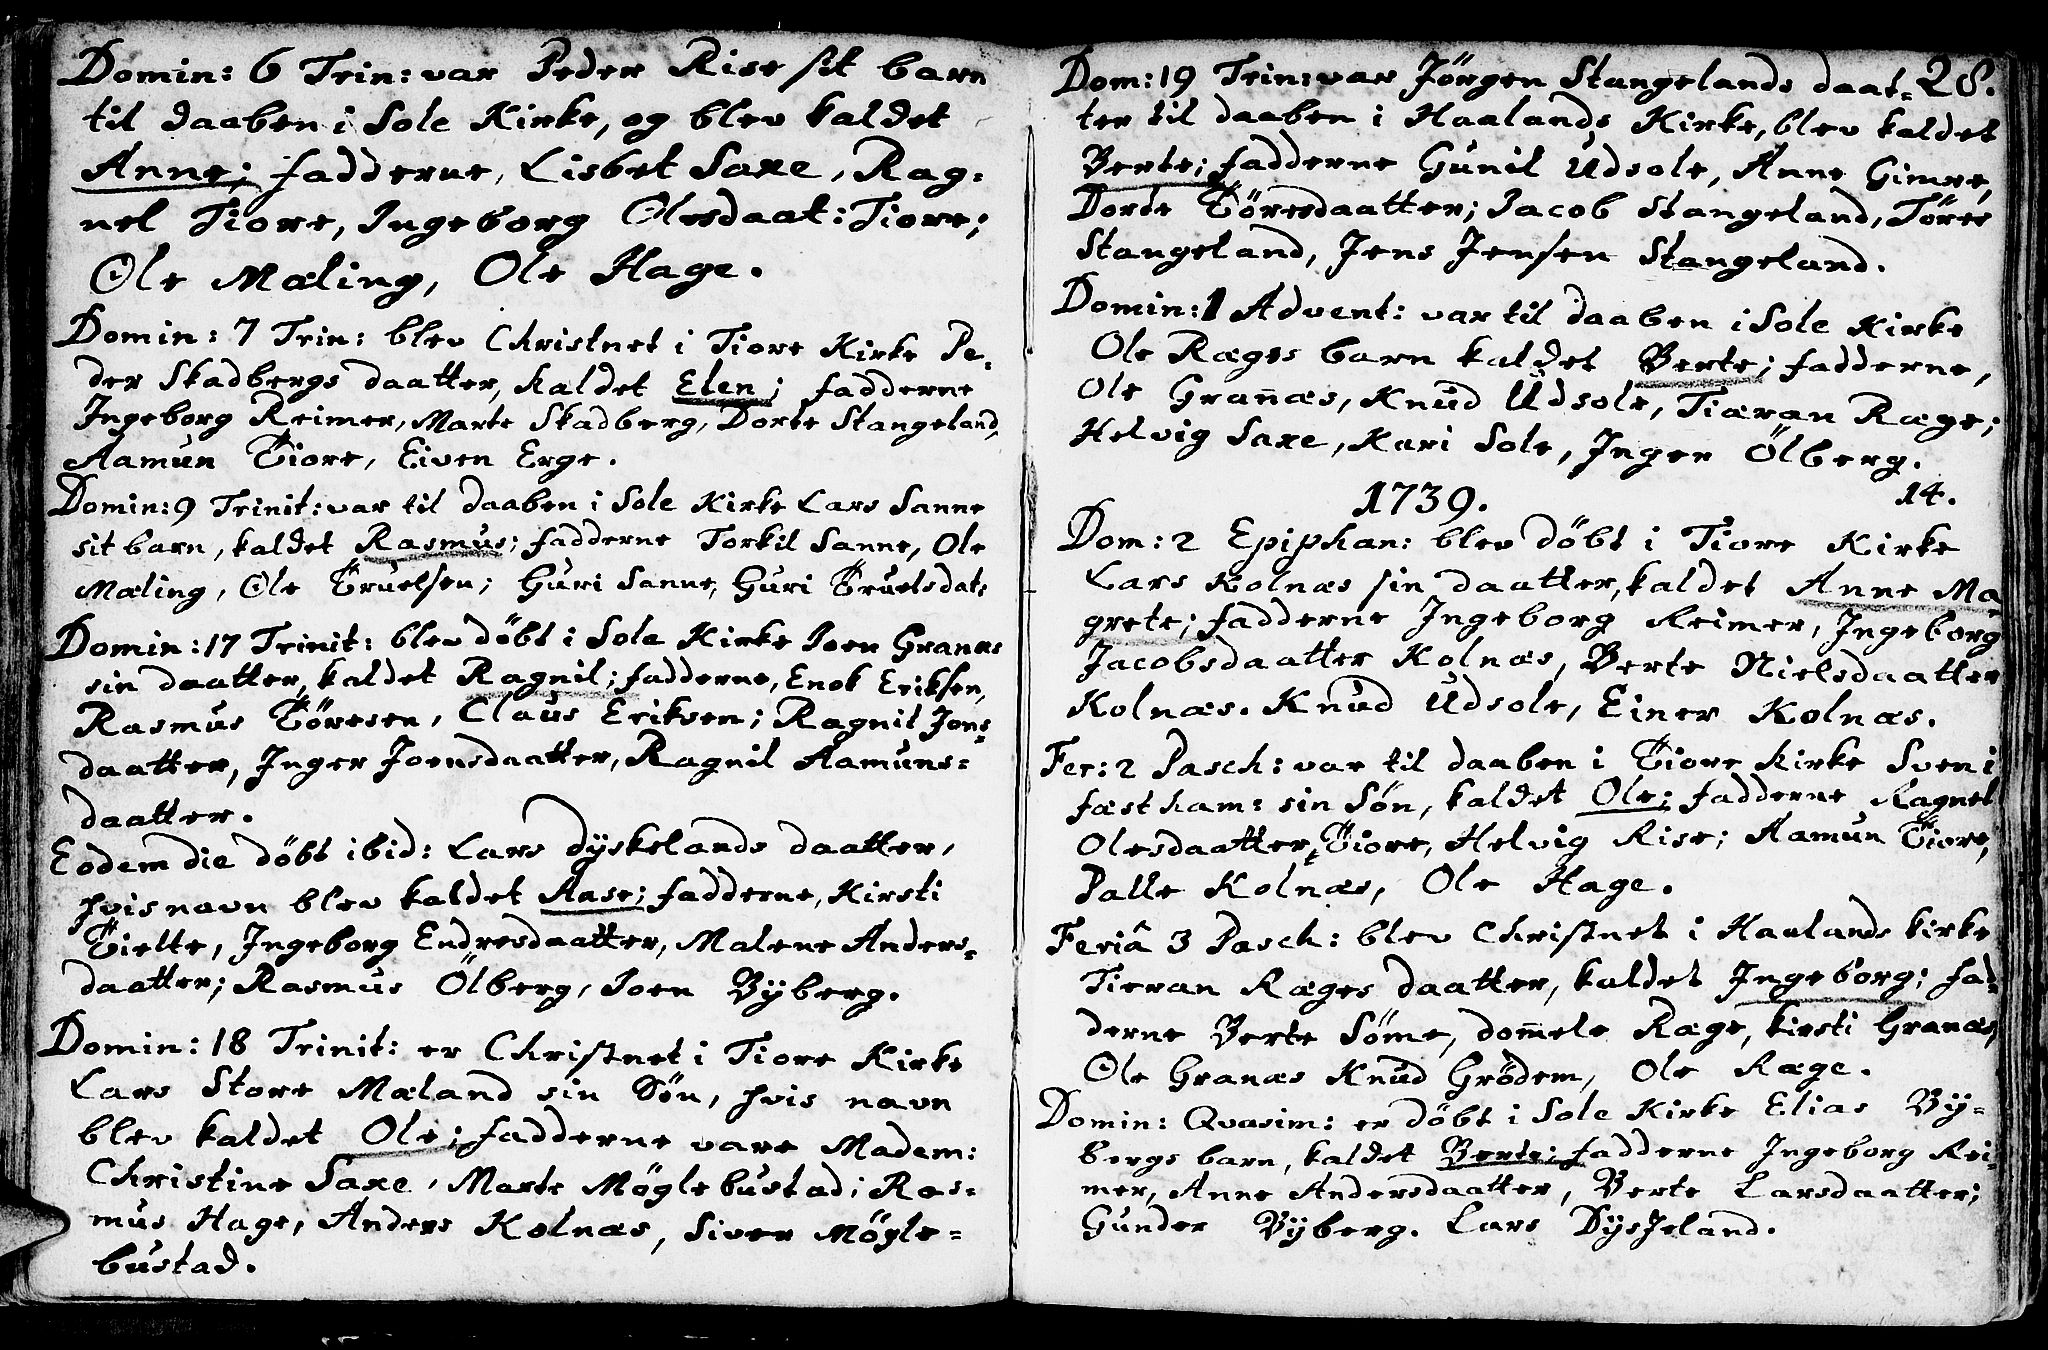 Domin: 6 Trin: var Peder Rise sit barn
til daaben i Sole Kirke, og blev kaldet
Anne; fadderne, Lisbet Saxe, Rag-
nel Tiore, Ingeborg Olesdaat: Tiore;
Ole Mæling, Ole Hage.
Domin: 7 Trin: blev Christnet i Tiore Kirke Pe-
der Skadbergs daatter, kaldet Elen; fadderne
Ingeborg Reimer, Marte Skadberg, Dorte Stangeland,
Aamun Tiore, Eiven Erge.
Domin: 9 Trinit: var til daaben i Sole Kirke Lars Sanne
sit barn, kaldet Rasmus; fadderne Torkil Sanne, Ole
Mæling, Ole Truelsen; Guri Sanne, Guri Truelsdat:
Domin: 17 Trinit: blev döbt i Sole Kirke Joen Granæs
sin daatter, kaldet Ragnil; fadderne, Enok Eriksen,
Rasmus Töresen, Claus Eriksen; Ragnil Jons-
daatter, Inger Joensdaatter, Ragnil Aamuns-
daatter.
Eodem die döbt ibid: Lars Dyskelands daatter,
hvis navn blev kaldet Aase; fadderne, Kirsti
Tielte, Ingeborg Endresdaatter, Malene Anders-
daatter; Rasmus Ölberg, Joen Byberg.
Domin: 18 Trinit: er Christnet i Tiore Kirke
Lars Store Mæland sin Sön, hvis navn
blev kaldet Ole; fadderne vare Madem:
Christine Saxe, Marte Möglebustad; Ras-
mus Hage, Anders Kolnæs, Siver Mögle-
bustad.
Dom: 19 Trin: var Jörgen Stangelands daat- 28.
ter til daaben i Haalands Kirke, blev kaldet
Berte; fadderne Gunil Udsole, Anne Gimre,
Dorte Töresdaatter; Jacob Stangeland, Töres
Stangeland, Jens Jensen Stangeland.
Domin: 1 Advent: var til daaben i Sole Kirke
Ole Ræges barn kaldet Berte; fadderne,
Ole Grañæs, Knud Udsole, Tiæran Ræge;
Helvig Saxe, Kari Sole, Inger Ölberg.
1739. 14.
Dom: 2 Epiphan: blev döbt i Tiore Kirke
Lars Kolnæs sin daatter, kaldet Anne Ma-
grete; fadderne Ingeborg Reimer, Ingeborg
Jacobsdaatter Kolnæs, Berte Nielsdaatter
Kolnæs. Knud Udsole, Einer Kolnæs.
Fer: 2 Pasch: var til daaben i Tiore Kirke Sven i
fæst ham: sin Sön, kaldet Ole; fadderne Ragnel
Olesdaatter, Tiore, Helvig Rise; Aamun Tiore,
Palle Kolnæs, Ole Hage.
Feriâ 3 Pasch: blev Christnet i Haalands kirke
Tieran Ræges daatter, kaldet Ingeborg; fad-
derne Berte Söme, dom̃ele Ræge, kirsti Granæs,
Ole Granæs Knud Grödem, Ole Ræge.
Domin: Qvasim: er döbt i Sole Kirke Elias By-
bergs barn, kaldet Berte; fadderne Ingeborg Rei-
mer, Anne Andersdaatter, Berte Larsdaatter;
Gunder Byberg. Lars Dysjeland.